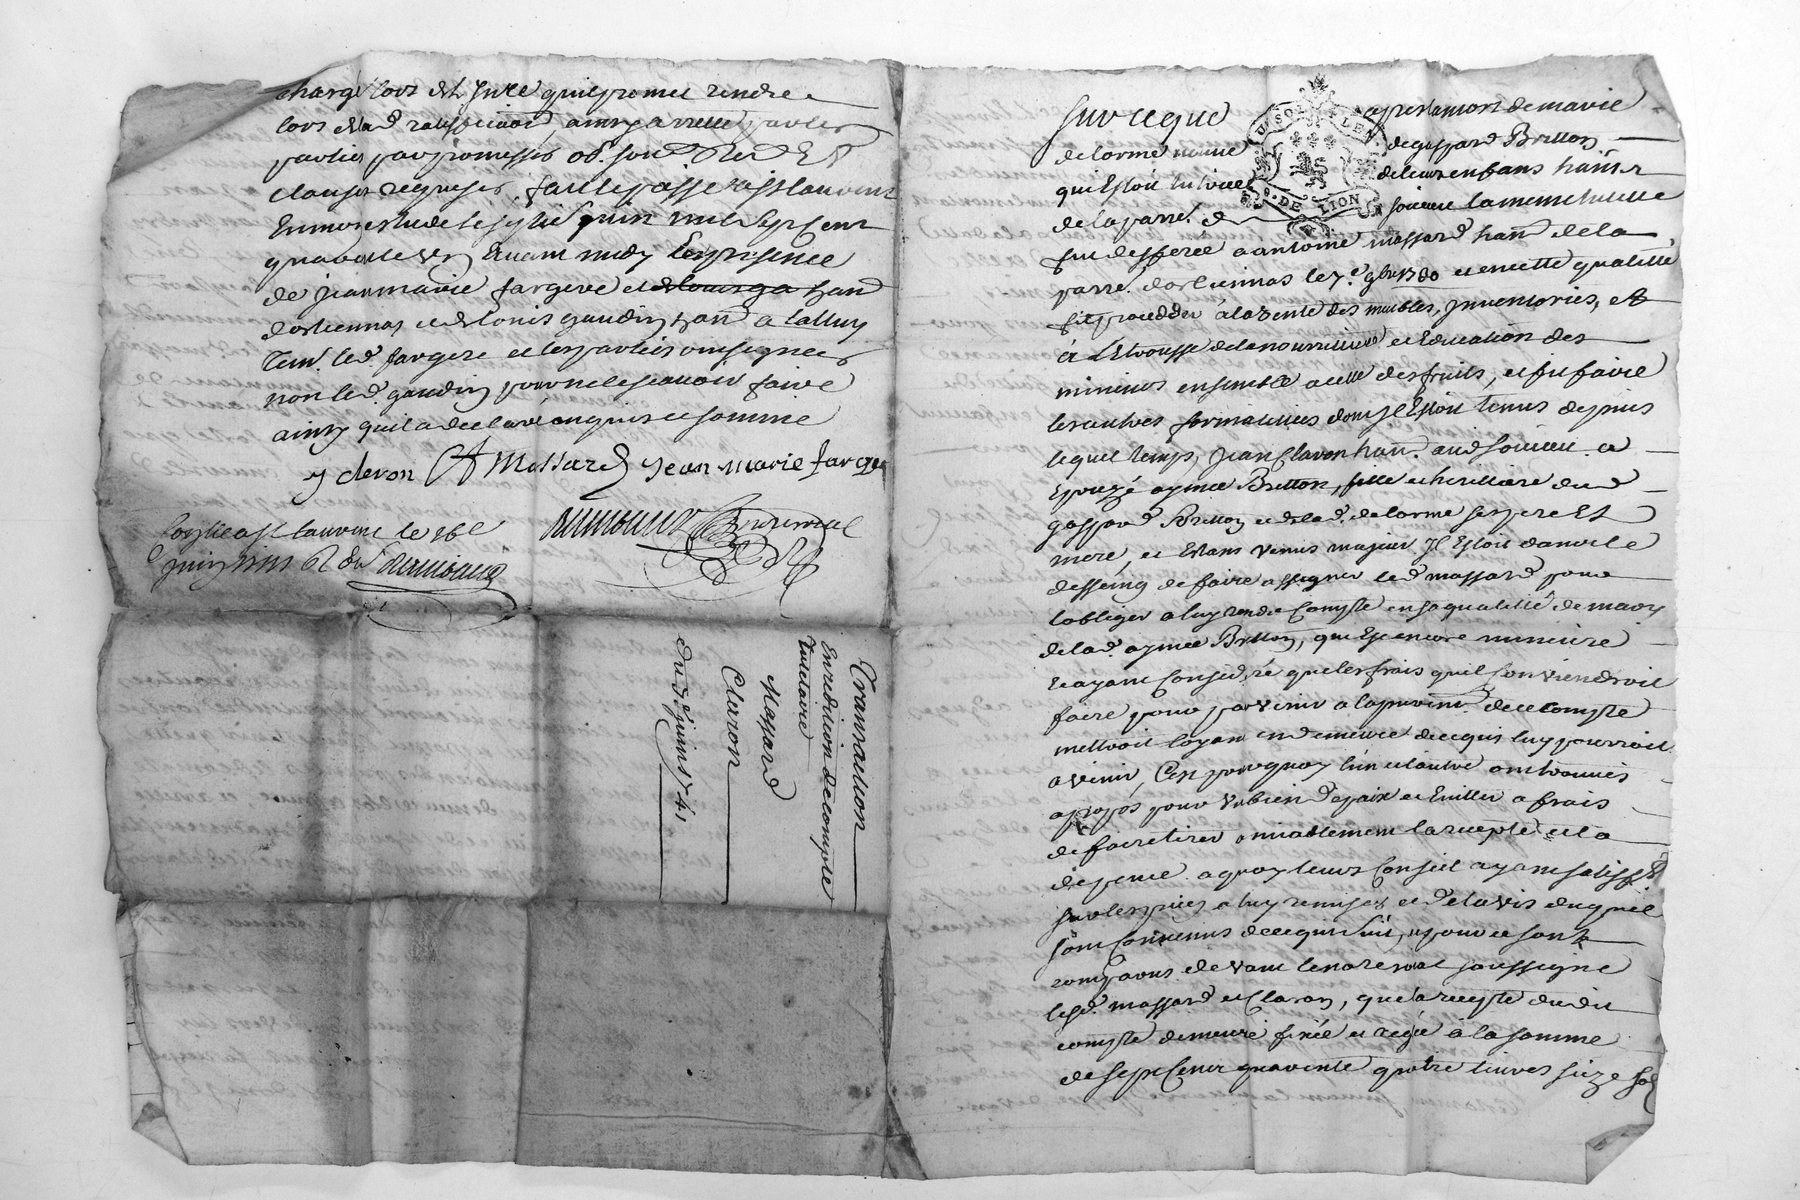 chargé lors de
quil promet rendre
lors de lad ratiffication, ainsy arresté
parties par promesses ob. soum
clauses requises, fait & passé à St Laurent
En mon estude le septie juin mil sept cent
quarante un avant midy En presence
de jean marie fargere et de han
dorliennas et de Louis gaudin han a talluy
tem. led. fargere et les parties ont signé
non led. gaudin pour ne le scavoir faire
ainsy quil a declaré enquis et sommé
J claron A Massard Jean Marie farge
Conllé a St Laurent le
juin 1741
Transaction
En reddition de compte
Tutelaire
Massard
Claron
Du 7e juin 1741
Sur ce que apres la mort de marie
delorme veuve de gaspard Bretton
qui Estoit tutrice de leurs enfans han
de la parr. de soucieu la meme tutelle
fut defferée a antoine massard han de la
parr. dorliennas le 7e 9bre 1730 et en cette qualitté
fit proceder à la vente des meubles, Inventories, et
à L'Etrousse de la nourriture et Education des
mineurs ensemble a celle des fruits, et fit faire
les autres formalittés dont Jl Estoit tenus depuis
lequel temps, Jean Claron han. aud soucieu a
Epouzé aymée Bretton, fille et heritiere dud
gaspard Bretton et de lad. delorme ses pere Et
mere, et Estans venus majeur Jl Estoit dans le
desseing de faire assigner led massard pour
lobliger a luy rendre Compte en sa qualitté de mary
de lad. aymée Bretton, qui Est encore mineure
Et ayant Consideré que les frais quil Conviendroit
faire pour parvenir a la de ce compte
mettroit loyant en demeure de ce qui luy pourroit
avenir, Cest pourquoy l'un et l'autre ont trouvés
apropos pour Un bien de paix et Eviter a frais
de faire tirer amiablement la recepte et la
depence a quoy leurs Conseil ayant satisfait
sur les pieces a luy remises et de lavis duquel
sont Convenus de ce qui suit, et pour ce sont
comparus devant le no.re royal soussigné
lesd. massard et Claron, que la recepte dudit
compte demeure fixée et reglé à la somme
de sept Cent quarante quatre livres seize sols
U. SOLS
LEN.
G. DE LION